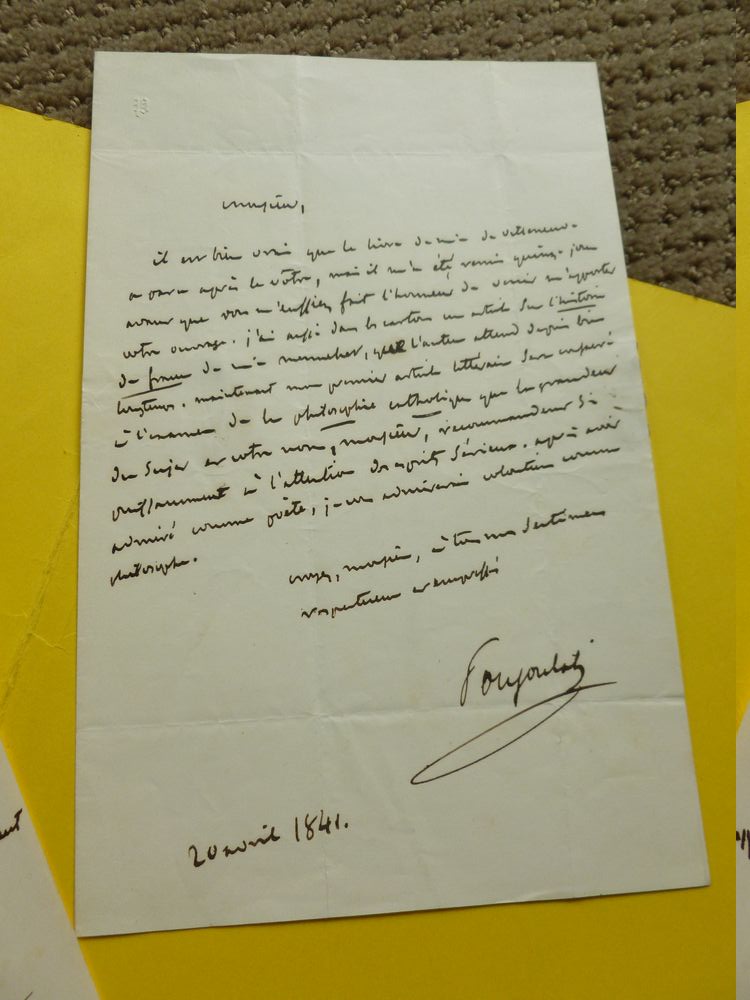 monsieur,
il est bien vrai que le livre de mr de villeneuve
a paru après le vôtre, mais il m'a été remis quinze jours
avant que vous m'eussiez fait l'honneur de venir m'apporter
votre ouvrage. j'ai aussi dans les cartons un article sur l'histoire
de france de mr mennechet, que l'auteur attend depuis bien
longtemps. maintenant mon premier article littéraire sera consacré
à l'examen de la philosophie catholique que la grandeur
du sujet et votre nom, monsieur, recommandent si
puissamment à l'attention des esprits sérieux. après avoir
admiré comme poète, je vous admirerai volontiers comme
philosophe.
croyez, monsieur, à tous mes sentimens
respectueux et empressés
Poujoulat
20 avril 1841.